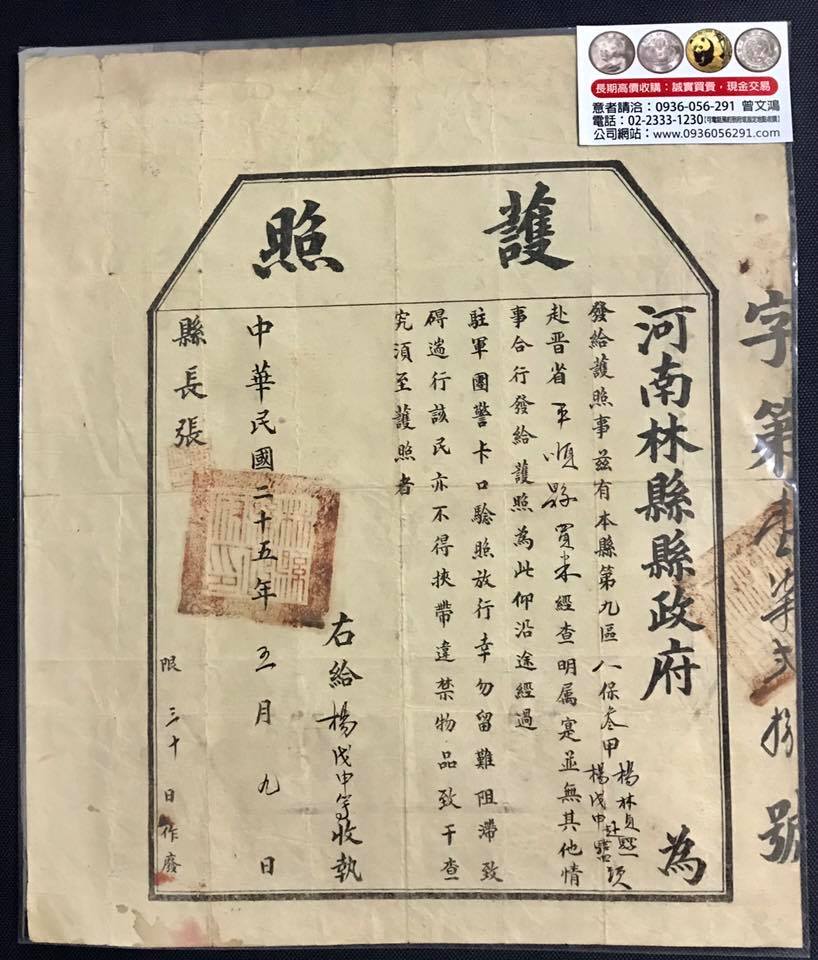 長期高價收購：誠實買賣，現金交易
意者請洽：0936-056-291 曾文鴻
電話：02-2333-1230
公司網站：www.0936056291.com
護照
字第壹 號
河南林縣縣政府 為
發給護照事茲有本縣第九區八保叁甲楊林貞 楊戊申
赴晋省平順縣買米經查明属寔並無其他情
事合行發給護照為此仰沿途經過
駐軍團警卡口驗照放行幸勿留難阻滯致
碍遄行該民亦不得挾帶違禁物品致干查
究須至護照者
右給楊戊申等收執
中華民國二十五年五月九日
縣長張
限三十日作廢